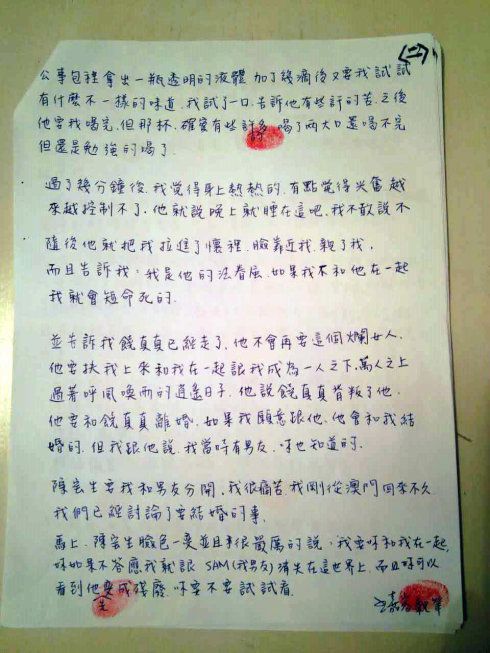 (二)
公事包裡拿出一瓶透明的液體 加了幾滴後又要我試試
有什麼不一樣的味道 我試了一口.告訴他有些許的苦.之後
他要我喝完.但那杯.確實有些許多 喝了兩大口還喝不完
的
但還是勉強的喝了.
過了幾分鐘後.我覺得身上熱熱的.有點覺得興奮 越
來越控制不了.他就說晚上就睡在這吧.我不敢說不
隨後他就把我拉進了懷裡.臉靠近我.親了我.
而且告訴我.我是他的法眷屬.如果我不和他在一起
我就會短命死的.
並告訴我饒真真已經走了.他不會再要這個爛女人.
他要扶我上來和我在一起跟我成為一人之下.萬人之上
過著呼風喚雨的逍遙日子.他說饒真真背叛了他.
他要和饒真真離婚.如果我願意跟他.他會和我結
婚的.但我跟他說.我當時有男友.你也知道的.
陳宏生要我和男友分開.我很痛苦.我剛從澳門回來不久
我們已經討論了要結婚的事.
馬上.陳宏生臉色一變並且很嚴厲的說.我要你和我在一起.
你如果不答應我就讓 SAM(我男友)消失在這世界上.而且你可以
看到他變成殘廢.你要不要試試看.
親筆